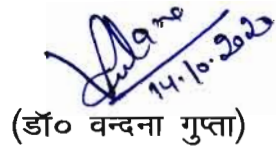 14.10.2020
(डॉ० वन्दना गुप्ता)